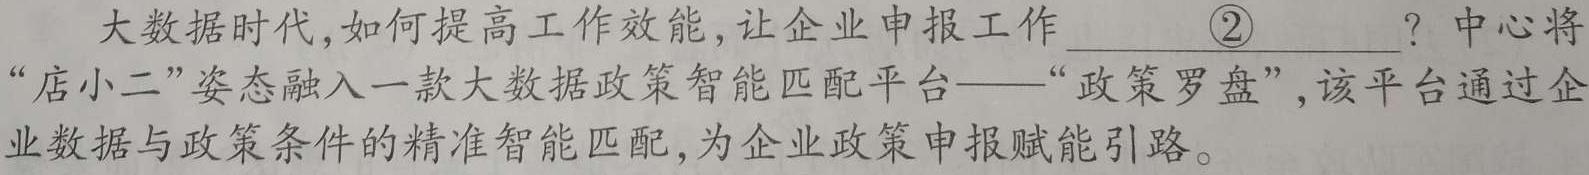 大数据时代,如何提高工作效能,让企业申报工作____②____?中心将
“店小二”姿态融入一款大数据政策智能匹配平台——“政策罗盘”,该平台通过企
业数据与政策条件的精准智能匹配,为企业政策申报赋能引路。